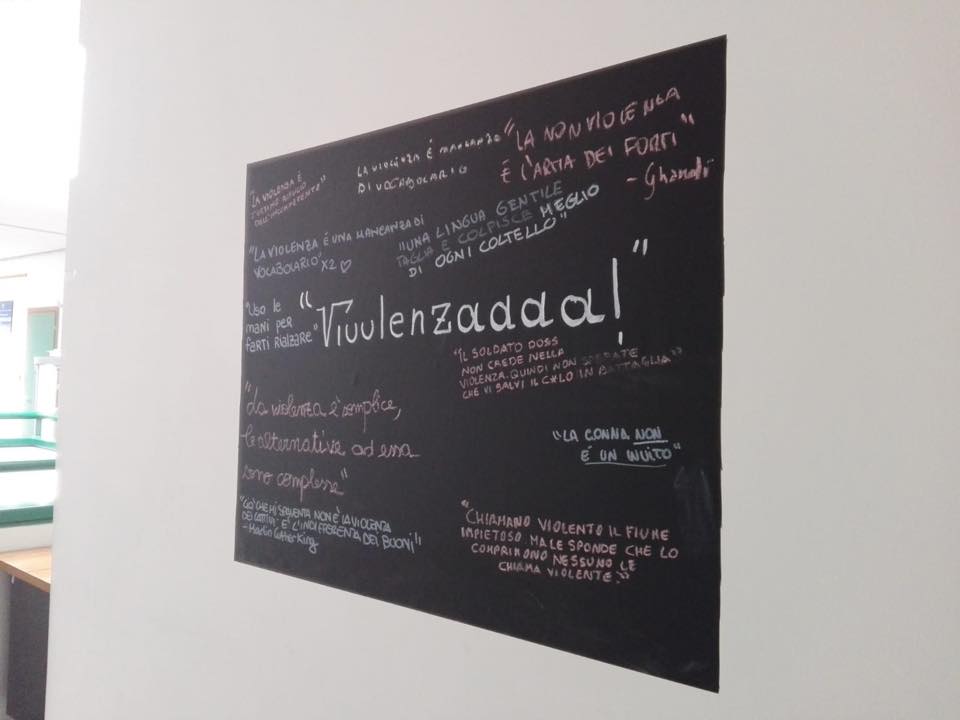 "LA VIOLENZA È
L'ULTIMO RIFUGIO
DELL'INCOMPETENTE"
LA VIOLENZA È MANCANZA
DI VOCABOLARIO
"LA NON VIOLENZA
È L'ARTA DEI FORTI"
- Ghandi
"LA VIOLENZA É UNA MANCANZA DI
VOCABOLARIO" X2 ♡
"UNA LINGUA GENTILE
TAGLIA E COLPISCE MEGLIO
DI OGNI COLTELLO"
"Uso le
mani per
farti rialzare"
"Viuulenzaaaa!"
"IL SOLDATO DOSS
NON CREDE NELLA
VIOLENZA. QUINDI NON SPERATE
CHE VI SALVI IL C*LO IN BATTAGLIA"
"La violenza è semplice,
le alternative ad essa
sono complesse"
"LA GONNA NON
É UN INVITO"
"CIÒ CHE MI SPAVENTA NON È LA VIOLENZA
DEI CATTIVI: E' L'INDIFFERENZA DEI BUONI"
- Martin Luther King
"CHIAMANO VIOLENTO IL FIUME
IMPETOSO MA LE SPONDE CHE LO
COMPRIMONO NESSUNO LE
CHIAMA VIOLENTE."